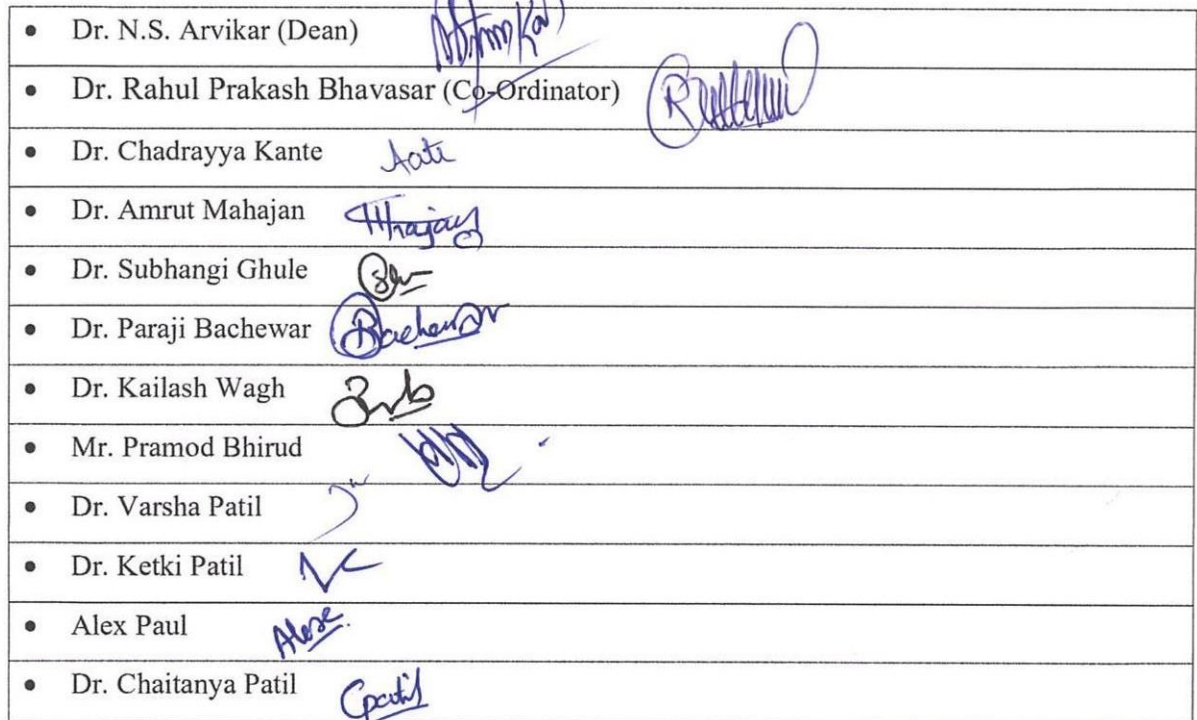 • Dr. N.S. Arvikar (Dean)
• Dr. Rahul Prakash Bhavasar (Co-Ordinator)
• Dr. Chadrayya Kante
• Dr. Amrut Mahajan
• Dr. Subhangi Ghule
• Dr. Paraji Bachewar Bachewar
• Dr. Kailash Wagh
• Mr. Pramod Bhirud
• Dr. Varsha Patil
• Dr. Ketki Patil
• Alex Paul
• Dr. Chaitanya Patil Cpatil